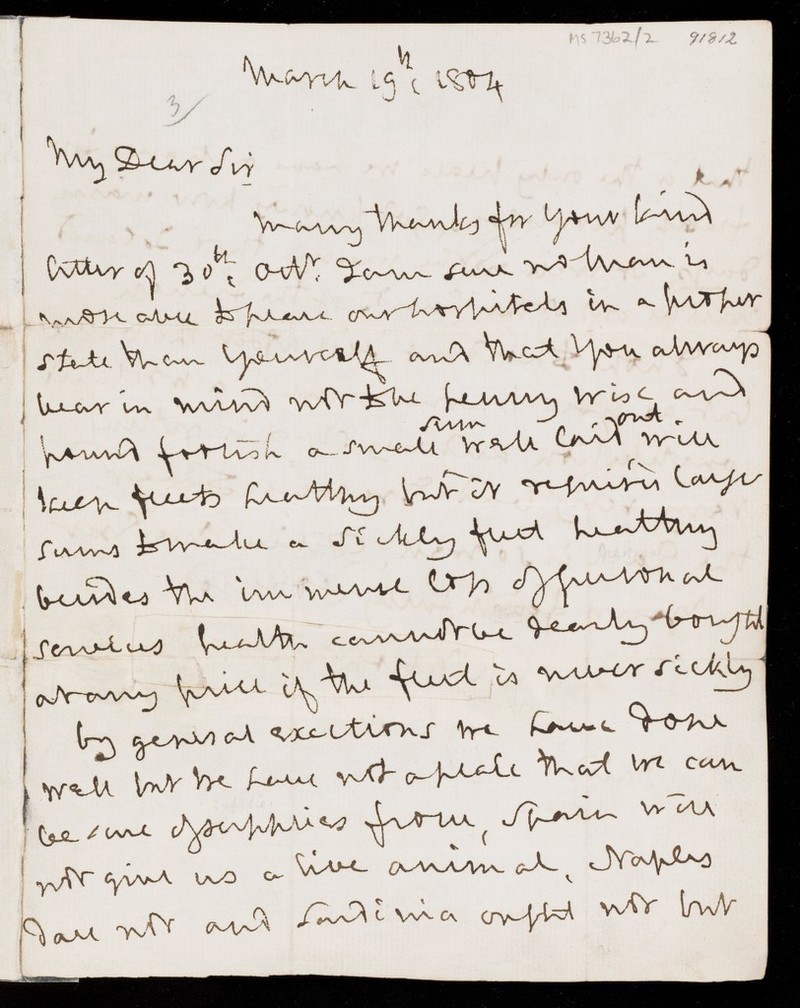 MS 7362/2 91812
March 19th: 1804
3/
My Dear Sir
many thanks for your kind
letter of 30th: Octr. I am sure no man is
more able to place our hospitals in a proper
state than yourself and that you always
bear in mind not to be penny wise and
pound foolish a small sum well laid out will
keep fleets healthy but it requires large
sums to make a sickly fleet healthy
besides the immense loss of personal
services health cannot be dearly bought
at any price if the fleet is never sickly
by general exertions we have done
well but we have not a place that we can
be sure of supplies from, Spain will
not give us a live animal, Naples
dare not and Sardinia ought not but